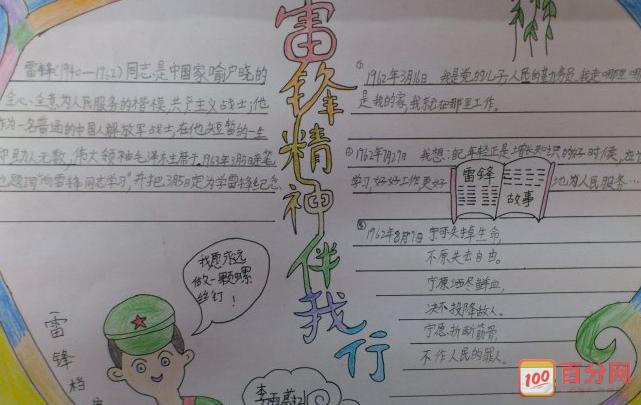 雷锋精神伴我行
雷锋(1940—1962)同志是中国家喻户晓的
全心全意为人民服务的楷模,共产主义战士;他
作为一名普通的中国人民解放军战士,在他短暂的一生
却助人无数,伟大领袖毛泽东主席于1963年3月5日亲笔
题词"向雷锋同志学习",并把3月5日定为学雷锋纪念
我愿永远
做一颗螺
丝钉!
雷
锋
档
①1962年3月16日 我是党的儿子,人民的勤务员,我走哪里
是我的家,我就在那里工作。
②1962年7月27日 我想:现年轻正是增长知识的好时候,应
学习,好好工作更好地为人民服务……
雷锋
故事
③1962年8月7日 宁可失掉生命,
不愿失去自由。
宁愿洒尽鲜血,
决不投降敌人。
宁愿折断筋骨,
不作人民的罪人。
100
百分网